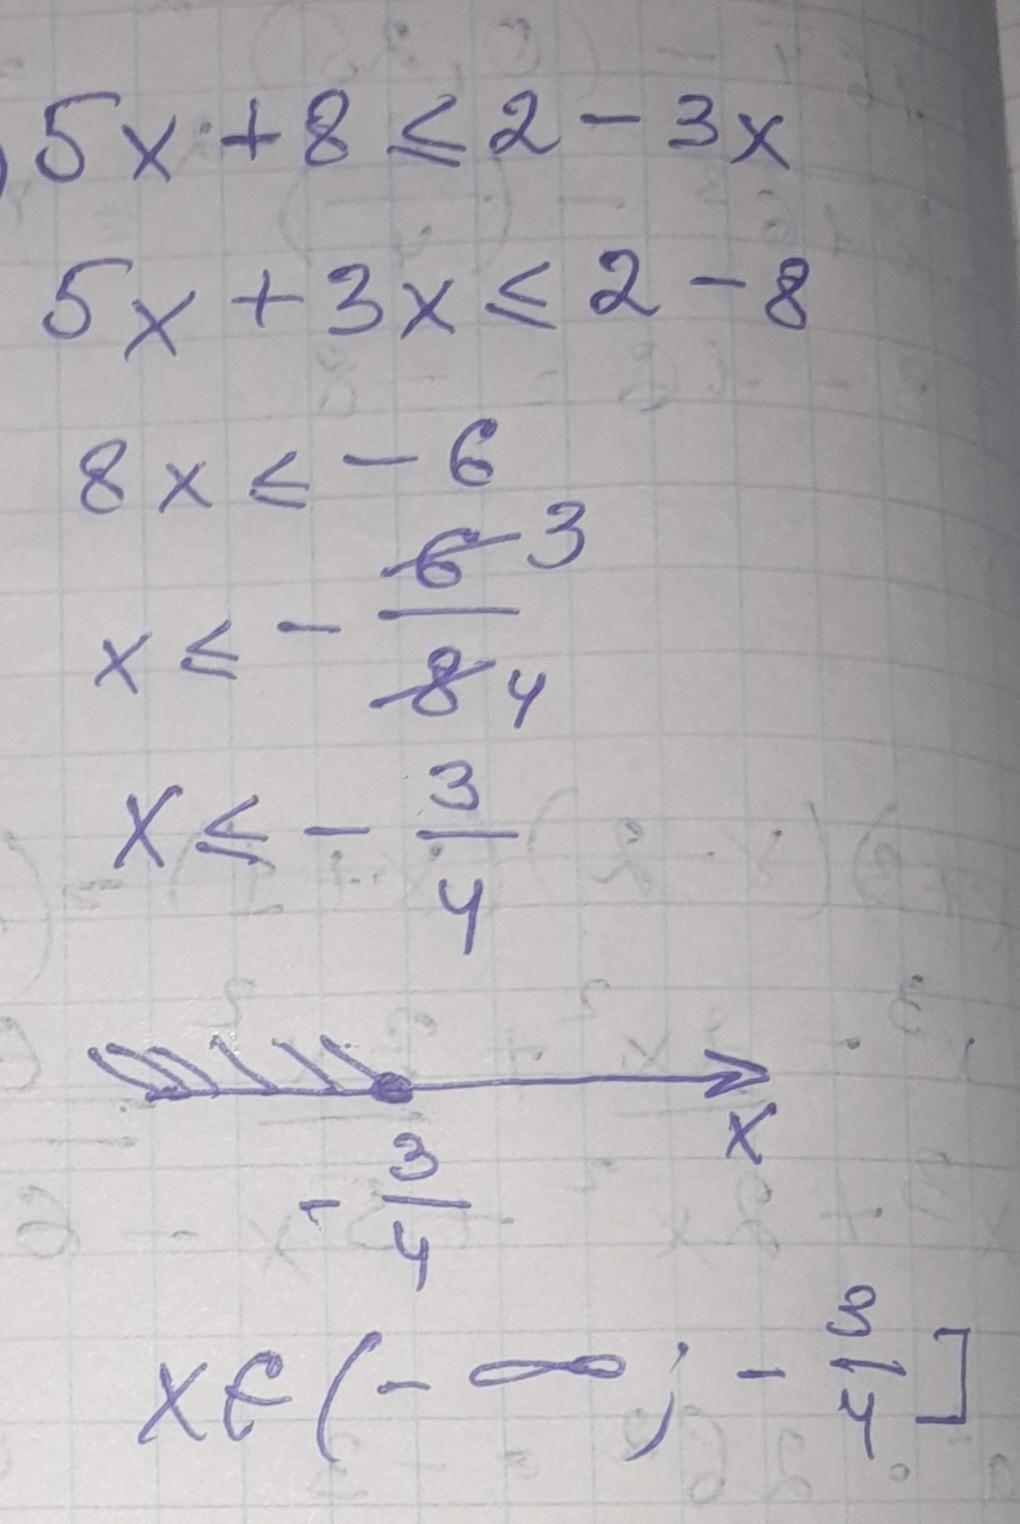 5x + 8 ≤ 2 - 3x
5x + 3x ≤ 2 - 8
8x ≤ - 6
x ≤ - 6/8 3/4
x ≤ - 3/4
x
- 3/4
x ∈ (- ∞; - 3/4]